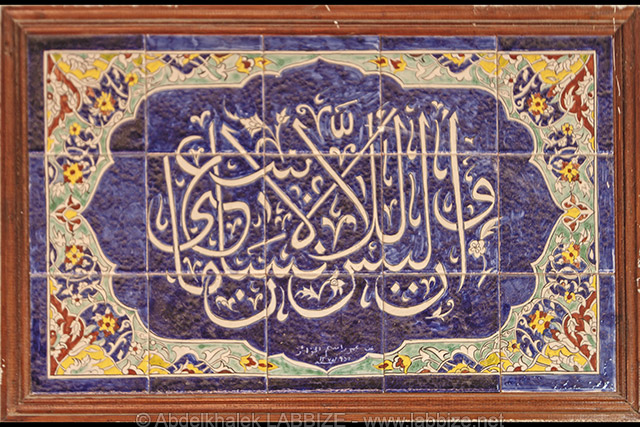 وأن ليس للإنسان إلا ما سعى
© Abdelkhalek LABBIZE - www.labbize.net